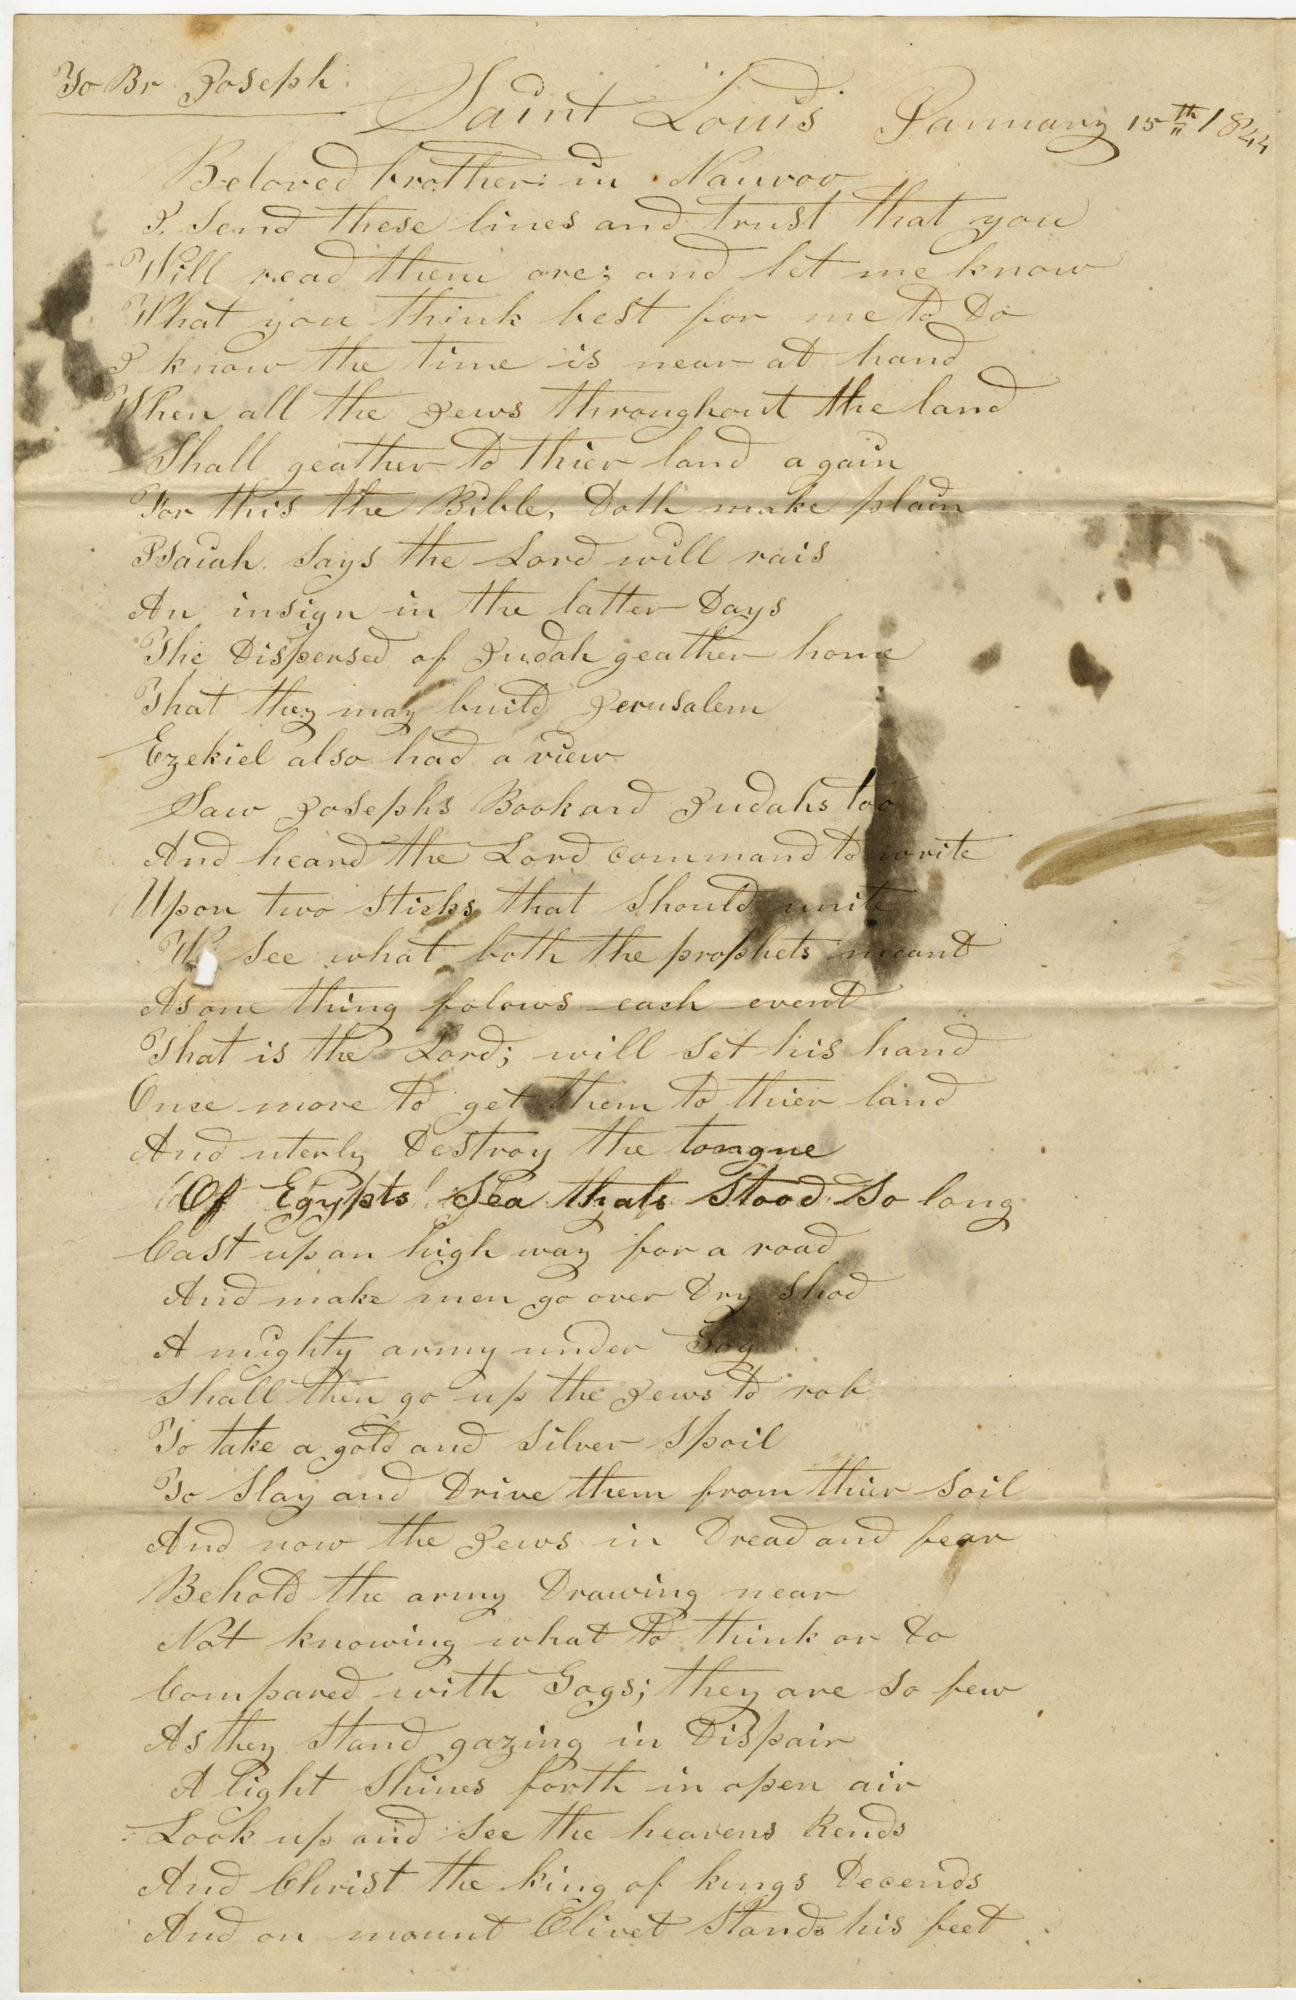 To Br Joseph
Saint Louis January 15th 1844
Beloved brother: in Nauvoo
I. Send these lines and trust that you
Will read them ore; and let me know
What you think best for me to Do
I know the time is near at hand
When all the Jews throughout the land
Shall geather to thier land again
For this the Bible, Doth make plain
Isaiah. Says the Lord will rais
An insign in the latter Days
The Dispersed of Judah geather home
That they may build Jerusalem
Ezekiel also had a view
Saw Josephs Book and Judahs too
And heard the Lord command to write
Upon two Sticks that Should unite
We See what both the prophets meant
As one thing folows each event
That is the Lord; will Set his hand
Once more to get them to thier land
And uterly Destroy the tongue
Of Egypts Sea thats Stood So long
Cast up an high way for a road
And make men go over Dry Shod
A mighty army under Gog
Shall then go up the Jews to rob
To take a gold and Silver Spoil
To Slay and Drive them from thier Soil
And now the Jews in Dread and fear
Behold the army Drawing near
Not knowing what to think or Do
Compared with Gogs; they are So few
As they Stand gazing in Dispair
A light Shines forth in open air
Look up and See the heavens Rends
And Christ the king of kings Decends
And on mount Olivet Stands his feet